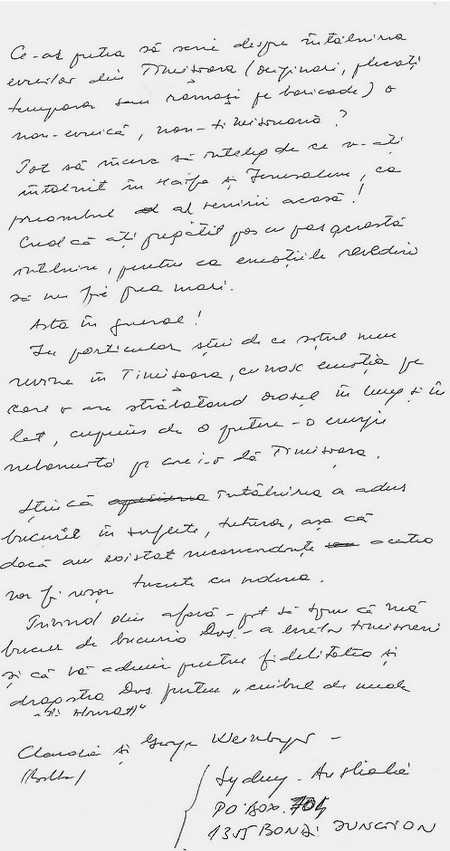 Ce-aș putea să scriu despre întâlnirea
evreilor din Timișoara (originari, plecați
temporar sau rămași pe baricade) o
non-evreică, non-timișoreană?
Pot să încerc să înțeleg de ce v-ați
întâlnit în Haifa și Jerusalem, ca
preambul al revenirii acasă!
Cred că ați pregătit pas cu pas această
întâlnire, pentru ca emoțiile revederii
să nu fie prea mari.
Asta în general!
În particular știu de ce soțul meu
revine în Timișoara, cunosc emoția pe
care o are străbătând orașul în lung și în
lat, cuprins de o putere - o energie
nebănuită pe care i-o dă Timișoara.
Știu că întâlnirea a adus
bucurii în suflete, tuturor, așa că
dacă au existat neconcordanțe acestea
vor fi ușor trecute cu vederea.
Privind din afară - pot să spun că mă
bucur de bucuria Dvs. - a evreilor timișoreni
și că vă admir pentru fidelitatea și
dragostea Dvs pentru "cuibul de unde
ați zburat"
Claudia și George Weinberger -
Sydney - Australia
PO BOX. 704
1355 BONDI JUNCTION